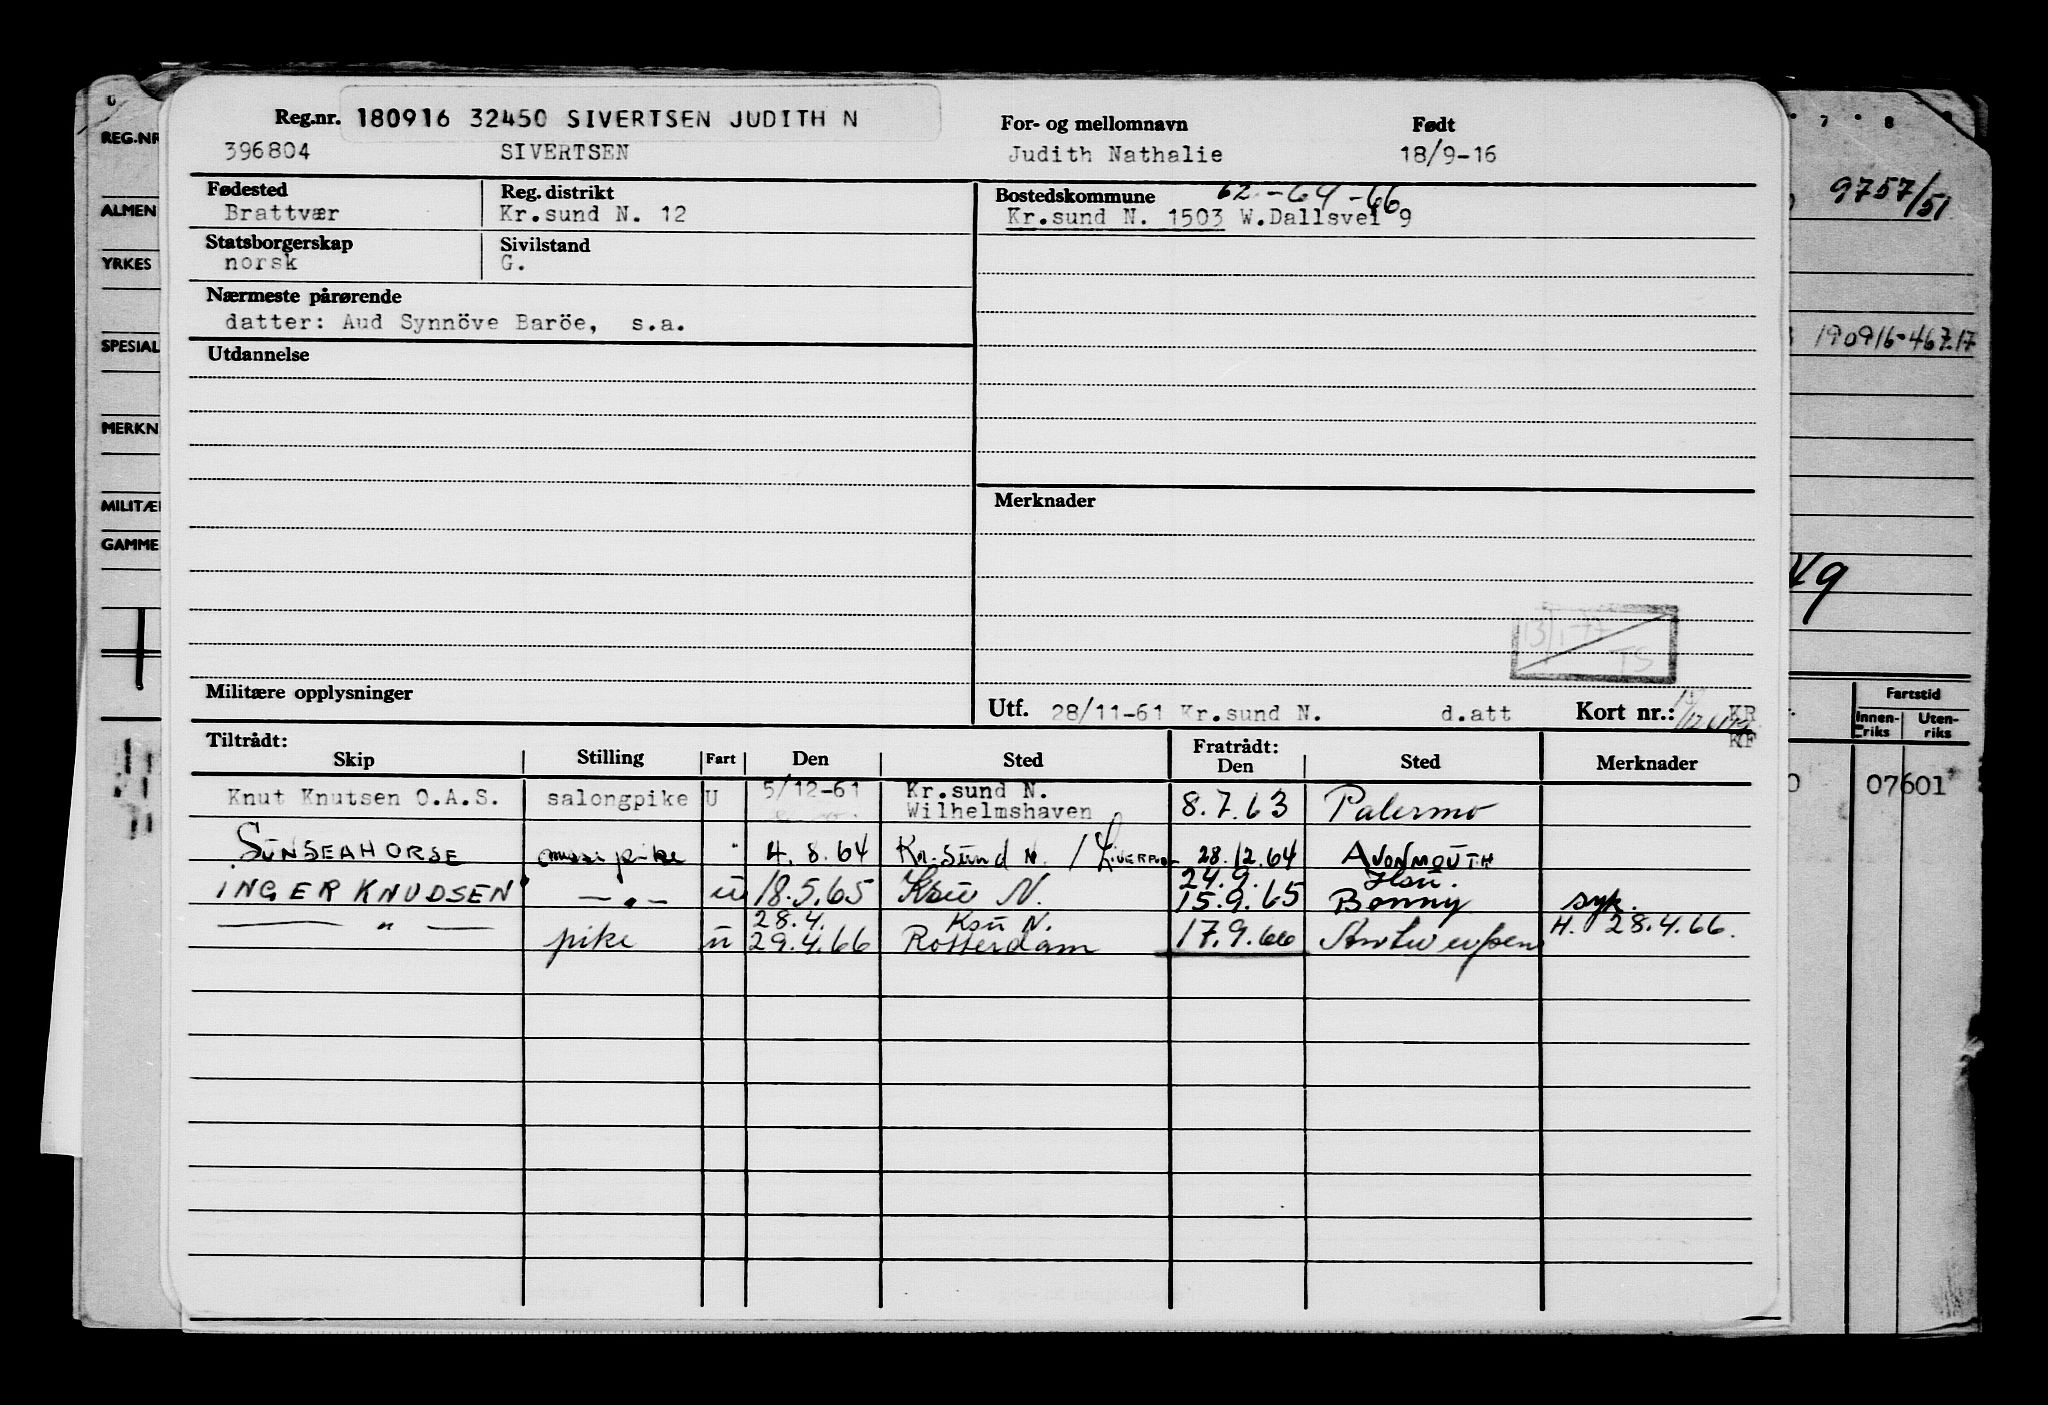 Reg.nr. 180916 32450 SIVERTSEN JUDITH N
396804 SIVERTSEN
For- og mellomnavn Født
Judith Nathalie 18/9-16
Fødested Reg. distrikt
Brattvær Kr.sund N. 12
Bostedskommune 62-64-66
Kr.sund N. 1503 W.Dallsvei 9
Statsborgerskap Sivilstand
norsk G.
Nærmeste pårørende
datter: Aud Synnöve Baröe, s.a.
Utdannelse
Merknader
Militære opplysninger
Utf. 28/11-61 Kr.sund N. d.att Kort nr.:
Tiltrådt: Fratrådt:
Skip Stilling Fart Den Sted Den Sted Merknader
Knut Knutsen O.A.S. salongpike U 5/12-61 Kr.sund N. Wilhelmshaven 8.7.63 Palermo
SUNSEAHORSE messepike " 4.8.64 Kr.sund N. / LIVERPOOL 28.12.64 AVONMOUTH
INGER KNUDSEN — " — u 18.5.65 Ksu N. 24.9. 15.9.65 Ksu. Bonny syk.
— " — pike u 28.4. 29.4.66 Ksu N. Rotterdam 17.9.66 Antwerpen H. 28.4.66.
REG.NR
ALMEN
YRKES
SPESIAL
MERKN
MILITÆ
GAMME
7 8
9757/51
190916-46717
49
Fartstid
Innen- Uten-
riks riks
07601